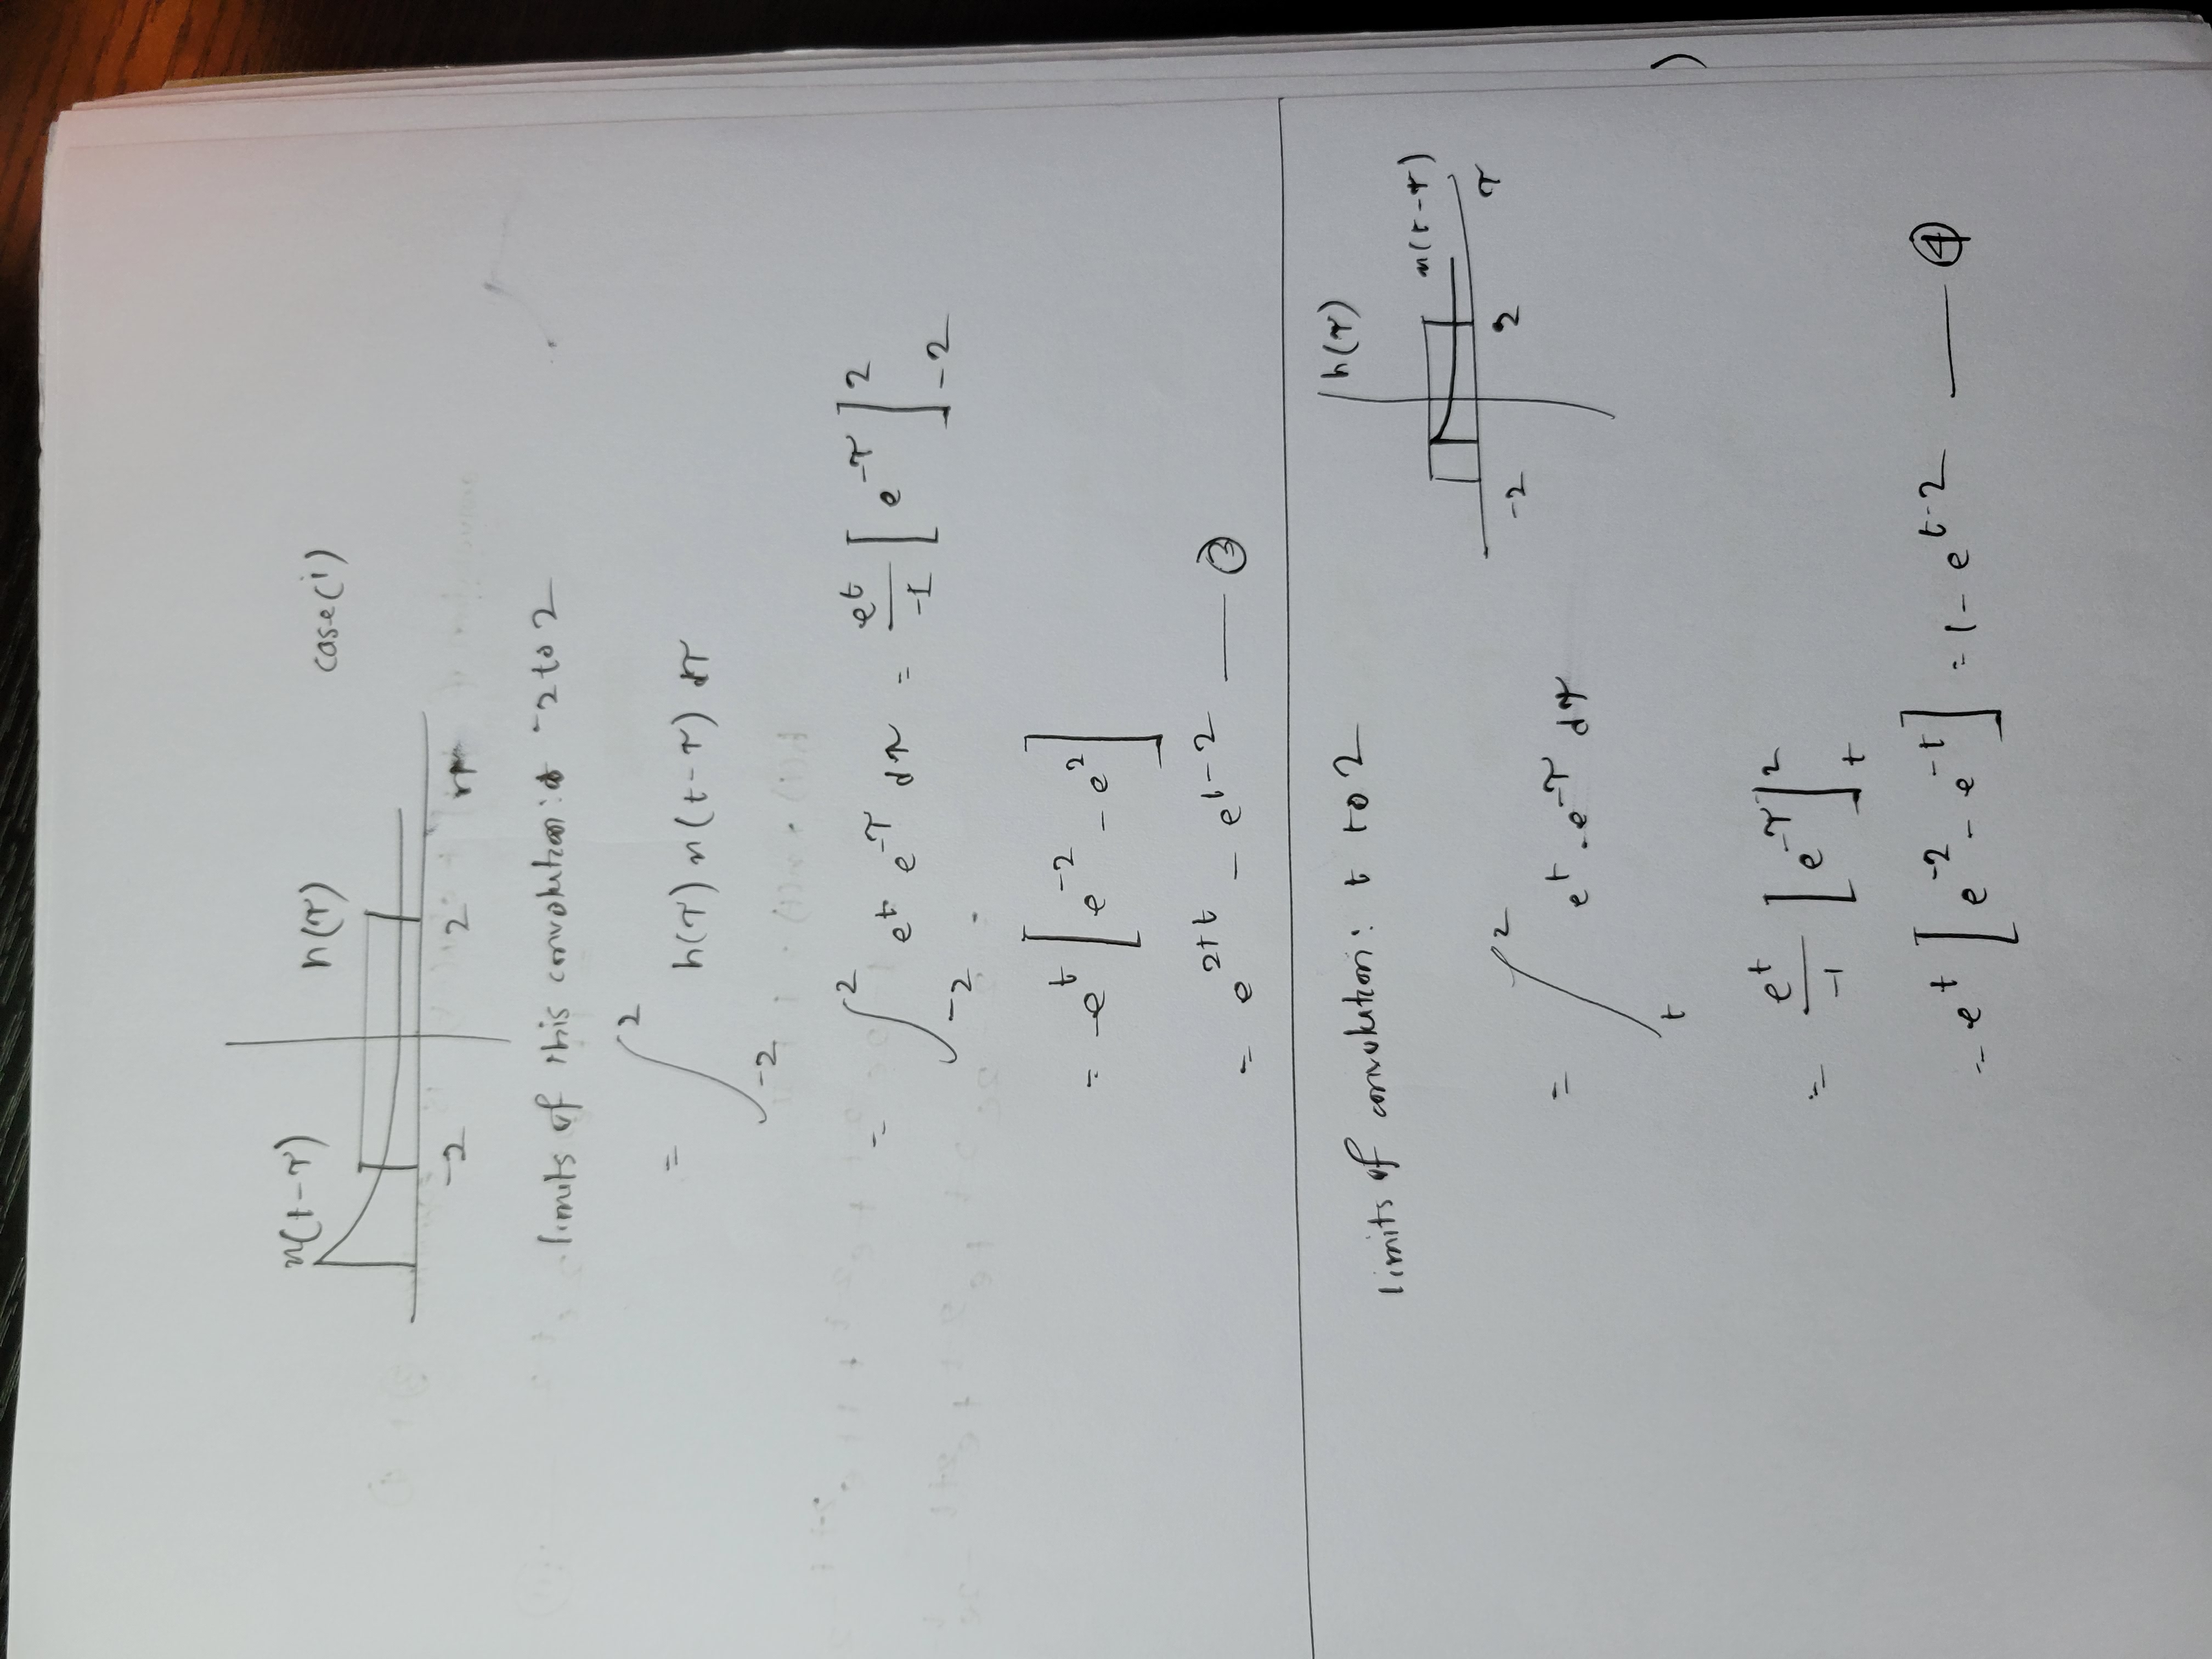 x(t-τ) h(τ) case(i)
-2 2
limits of this convolution: -2 to 2
= ∫_{-2}^{2} h(τ) x(t-τ) dτ
= ∫_{-2}^{2} e^t e^{-τ} dτ = e^t/-1 [e^{-τ}]_{-2}^{2}
= -e^t [e^{-2} - e^2]
= e^{2+t} - e^{t-2} — ③
limits of convolution: t to 2
h(τ)
x(t-τ)
-2 2 τ
= ∫_t^2 e^t . e^{-τ} dτ
= e^t/-1 [e^{-τ}]_t^2
= -e^t [e^{-2} - e^{-t}] = 1 - e^{t-2} — ④
)